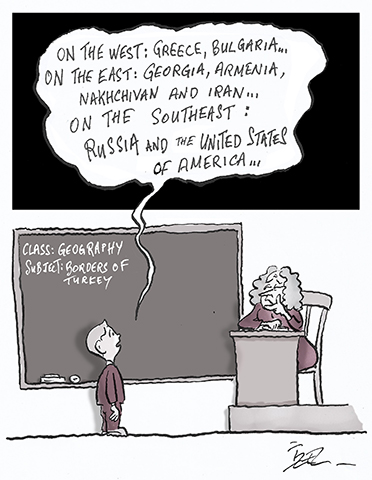 ON THE WEST: GREECE, BULGARIA...
ON THE EAST: GEORGIA, ARMENIA,
NAKHCHIVAN AND IRAN...
ON THE SOUTHEAST:
RUSSIA AND THE UNITED STATES
OF AMERICA...
CLASS: GEOGRAPHY
SUBJECT: BORDERS OF
TURKEY